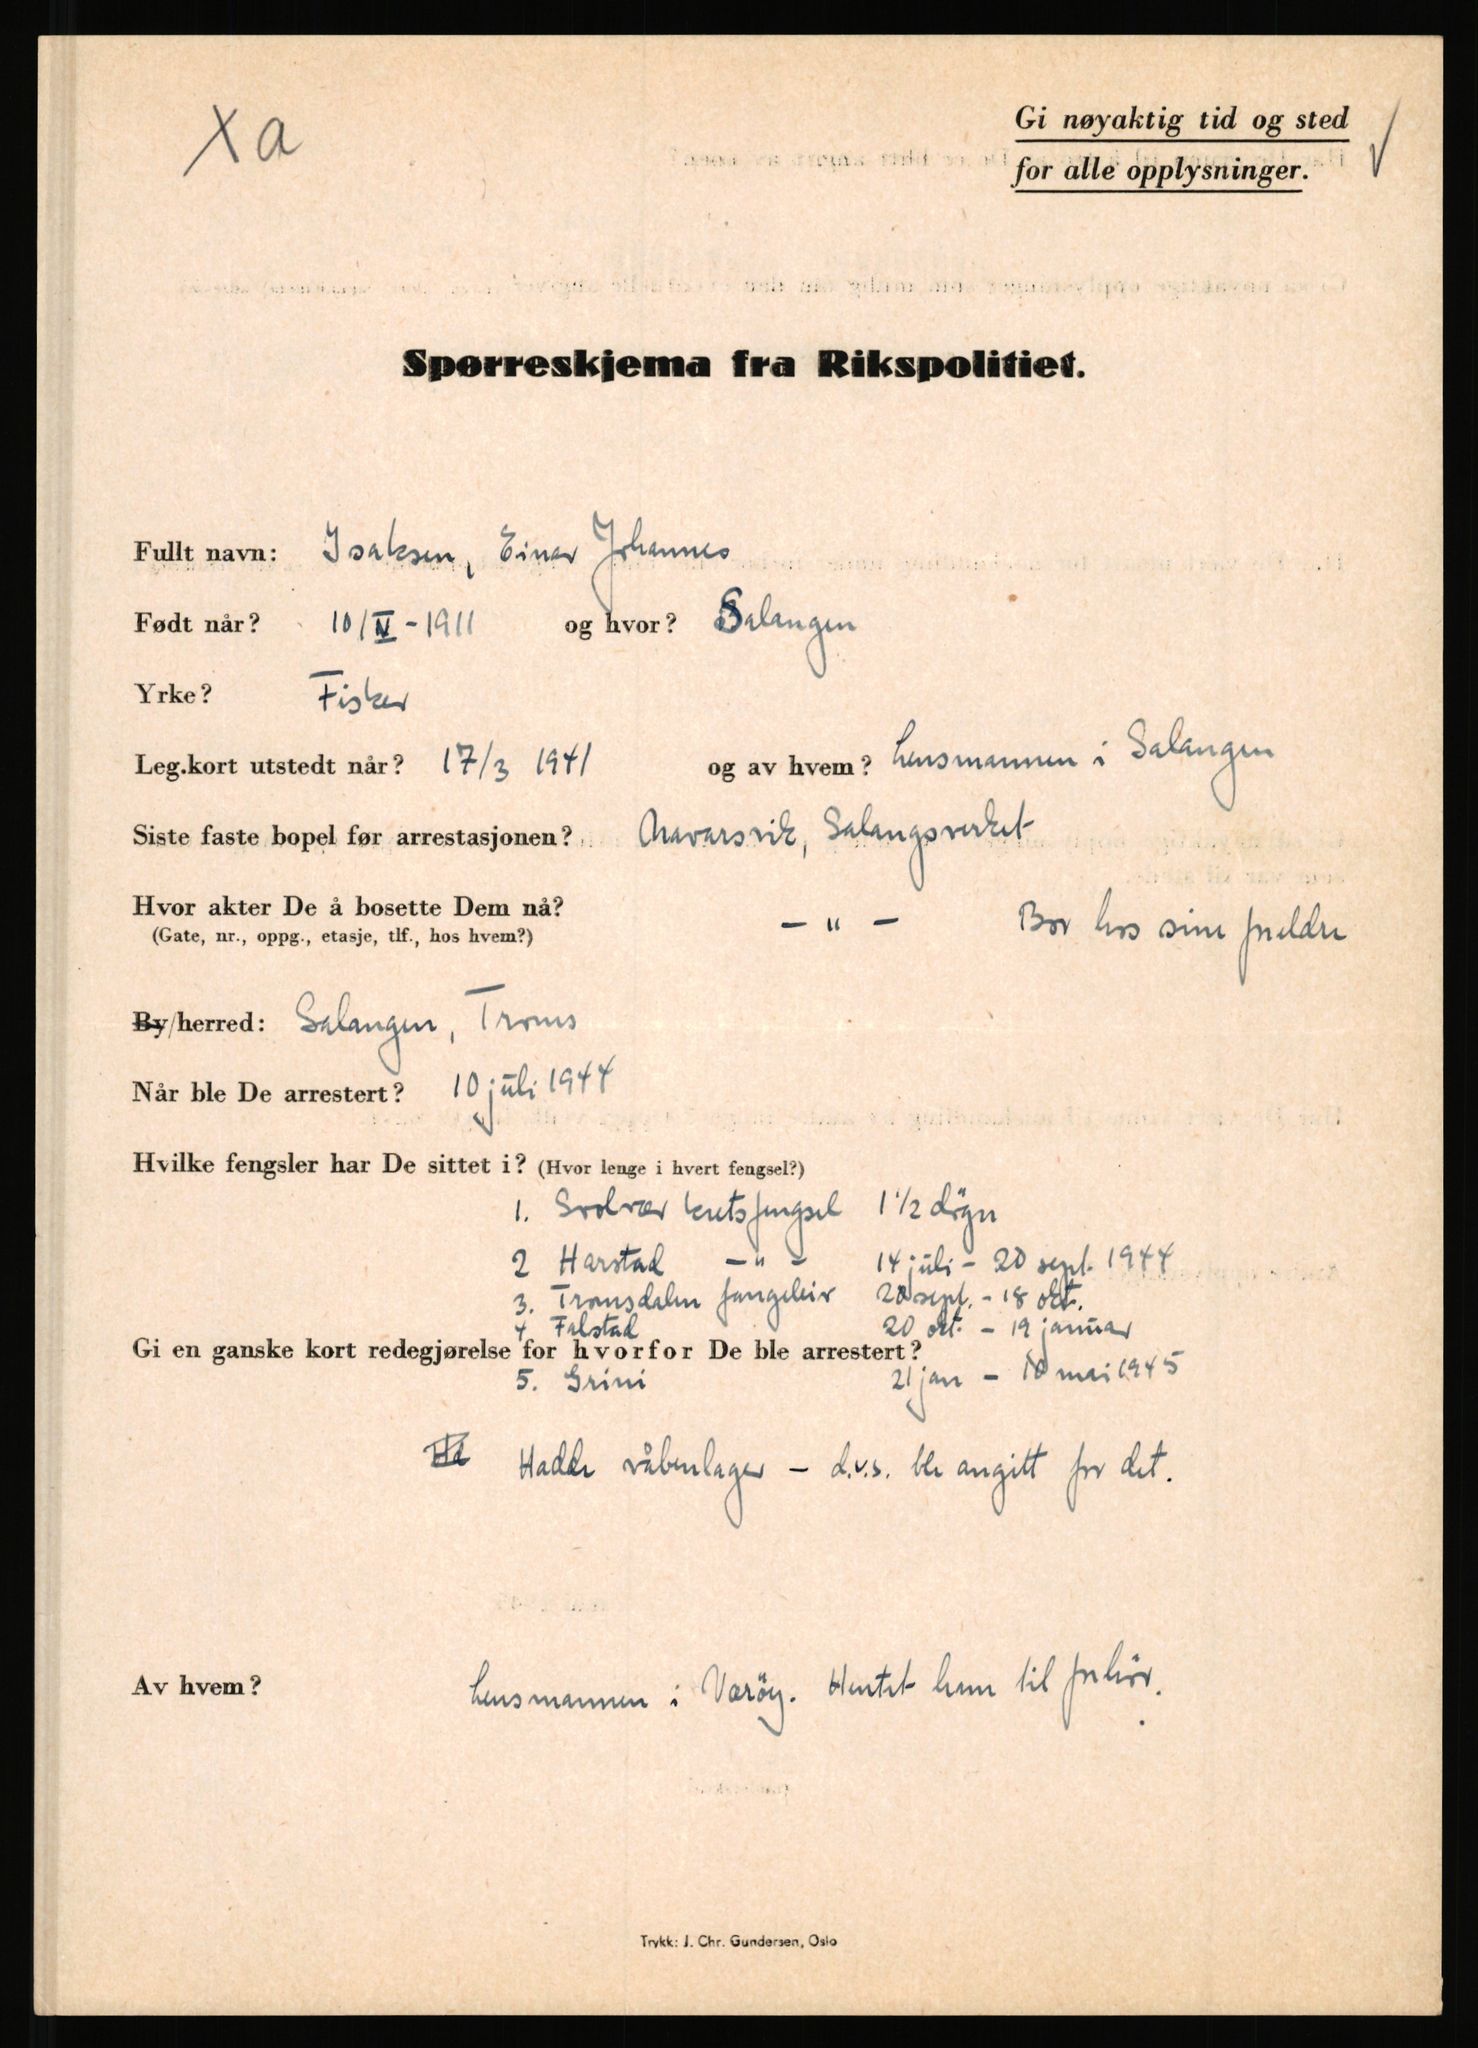 Xa
Gi nøyaktig tid og sted
for alle opplysninger.
Spørreskjema fra Rikspolitiet.
Fullt navn: Isaksen, Einar Johannes
Født når? 10/IV - 1911 og hvor? Salangen
Yrke? Fisker
Leg.kort utstedt når? 17/3 1941 og av hvem? Lensmannen i Salangen
Siste faste bopel før arrestasjonen? Mavarsvik, Salangsverket
Hvor akter De å bosette Dem nå? - " - Bor hos sine foreldre
(Gate, nr., oppg., etasje, tlf., hos hvem?)
By/herred: Salangen, Troms
Når ble De arrestert? 10 juli 1944
Hvilke fengsler har De sittet i? (Hvor lenge i hvert fengsel?)
1. Svolvær kretsfengsel 1 1/2 døgn
2 Harstad - " - 14 juli - 20 sept. 1944
3. Tromsdalen fangeleir 20 sept. - 18 okt.
4 Falstad 20 okt. - 19 januar
Gi en ganske kort redegjørelse for hvorfor De ble arrestert?
5. Grini 21 jan - 10 mai 1945
Hadde våbenlager - d.v.s. ble angitt for det.
Av hvem? Lensmannen i Værøy. Hentet ham til forhör.
Trykk: J. Chr. Gundersen, Oslo